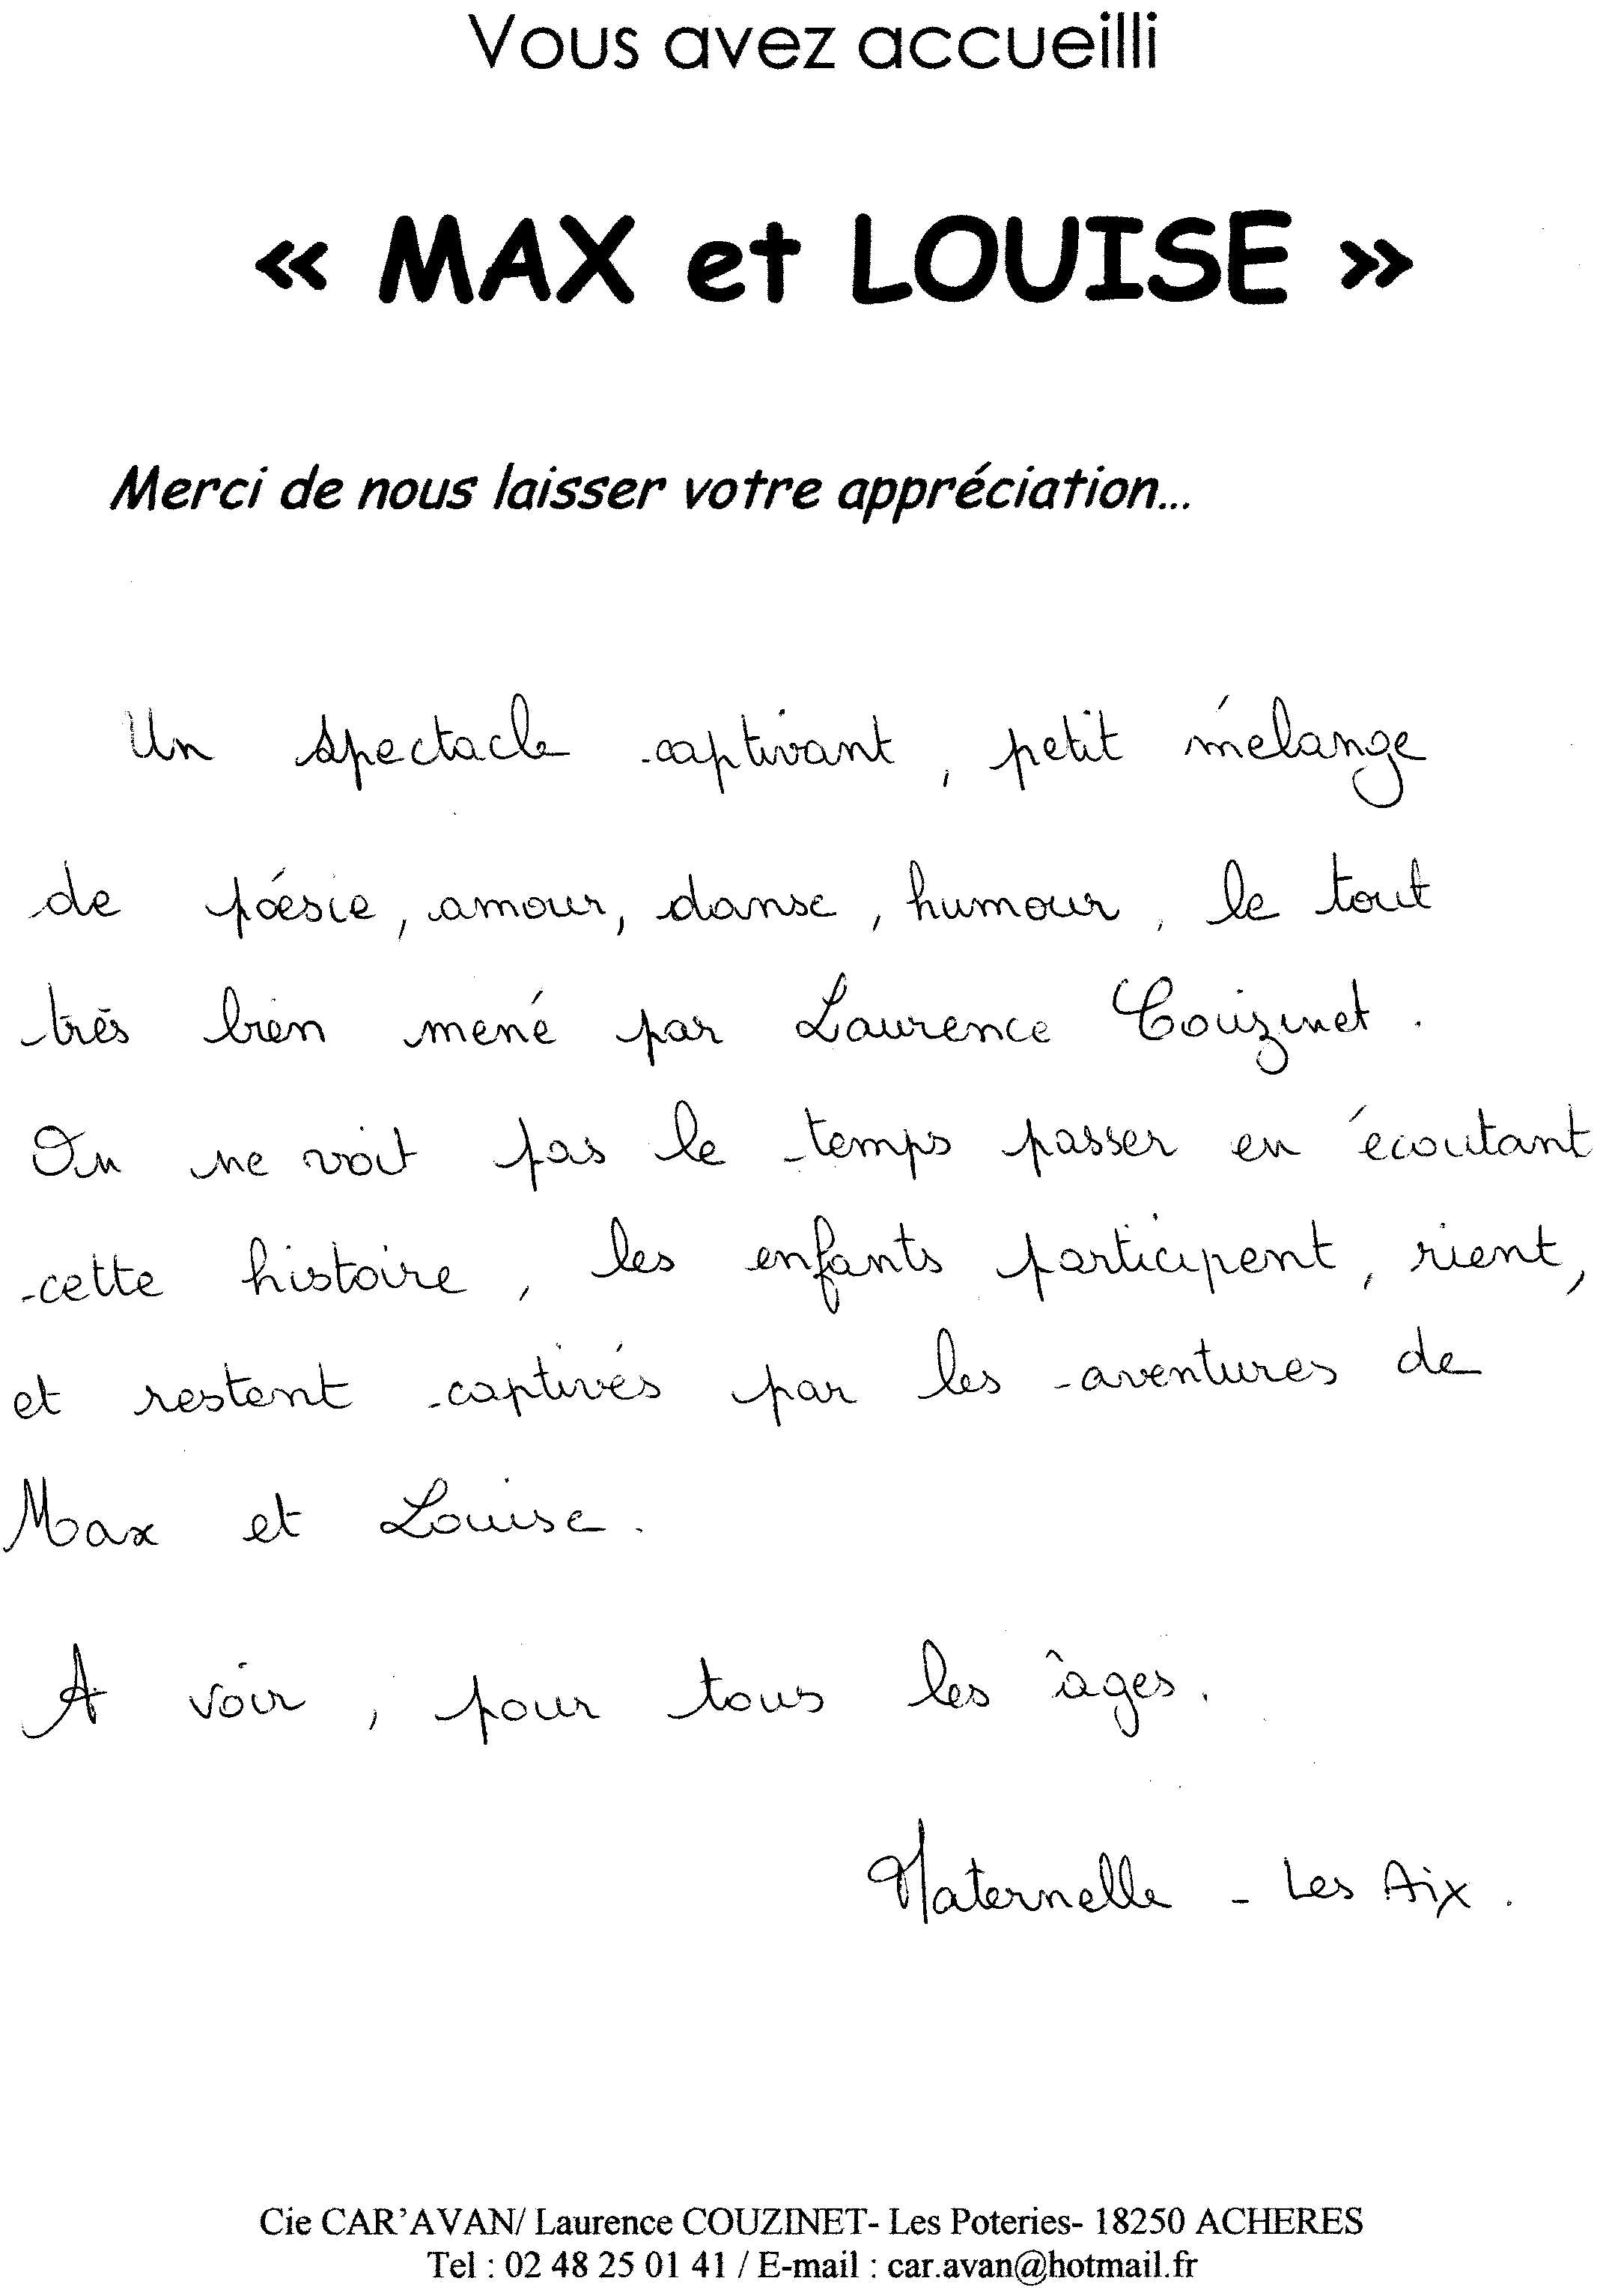 Vous avez accueilli
« MAX et LOUISE »
Merci de nous laisser votre appréciation...
Un spectacle captivant, petit mélange
de poésie, amour, danse, humour, le tout
très bien mené par Laurence Couzinet.
On ne voit pas le temps passer en écoutant
cette histoire, les enfants participent, rient,
et restent captivés par les aventures de
Max et Louise.
A voir, pour tous les âges.
Maternelle - Les Aix.
Cie CAR'AVAN/ Laurence COUZINET- Les Poteries- 18250 ACHERES
Tel : 02 48 25 01 41 / E-mail : car.avan@hotmail.fr